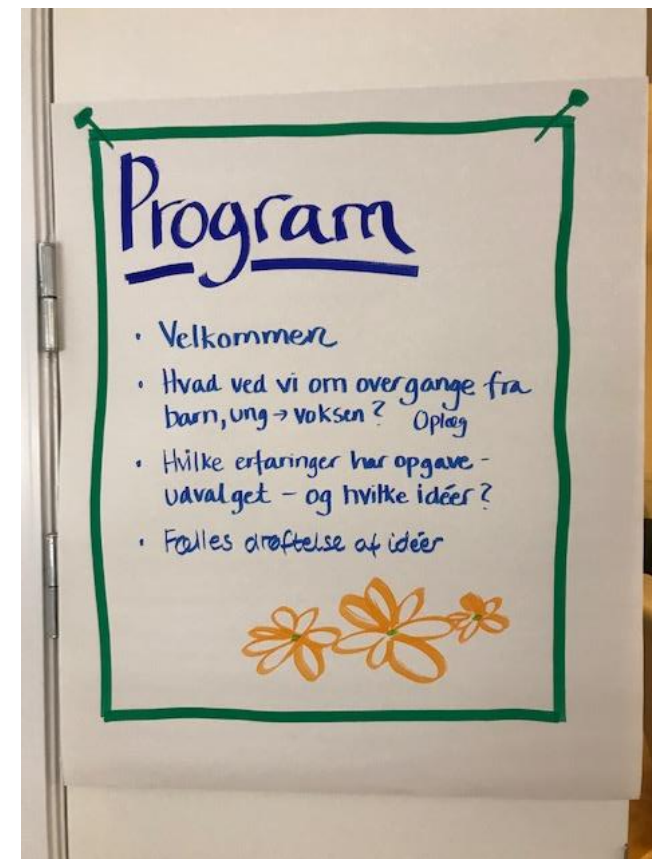 Program
· Velkommen
· Hvad ved vi om overgange fra
barn, ung → voksen? Oplæg
· Hvilke erfaringer har opgave-
udvalget - og hvilke idéer?
· Fælles drøftelse af idéer